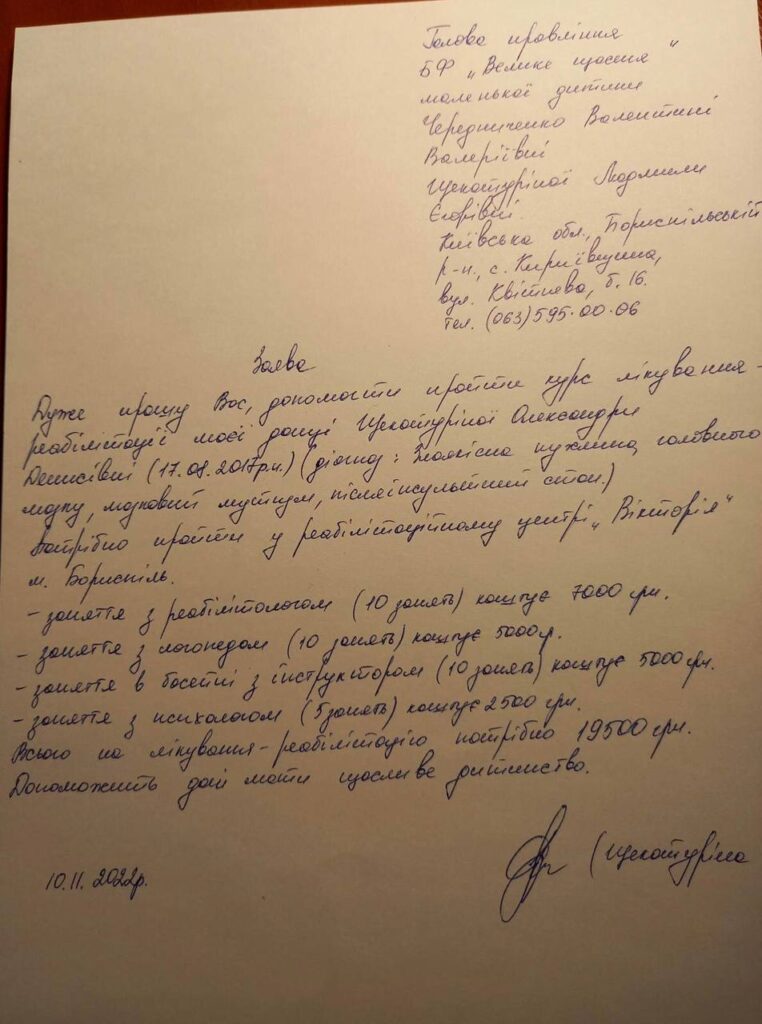 Голова правління
БФ „Велике щастя"
маленької дитини
Чередниченко Валентині
Валеріївні
Щекатуріної Людмили
Єгорівни
Київська обл., Бориспільській
р-н., с. Кириївщина,
вул. Квітнева, б. 16.
тел. (063) 595-00-06
Заява
Дуже прошу Вас, допомогти пройти курс лікування-
реабілітації моєї доньці Щекатуріної Олександри
Денисівни (17.08.2017р.н.) (діагноз: Злоякісна пухлина головного
мозку, мозковий мутизм, післяінсультний стан.)
Потрібно пройти у реабілітаційному центрі „Вікторія"
м. Бориспіль.
- заняття з реабілітологом (10 занять) коштує 7000 грн.
- заняття з логопедом (10 занять) коштує 5000 гр.
- заняття в басейні з інструктором (10 занять) коштує 5000 грн.
- заняття з психологом (5 занять) коштує 2500 грн.
Всього на лікування-реабілітацію потрібно 19500 грн.
Допоможить дай мати щасливе дитинство.
(Щекатуріна
10.11.2022р.